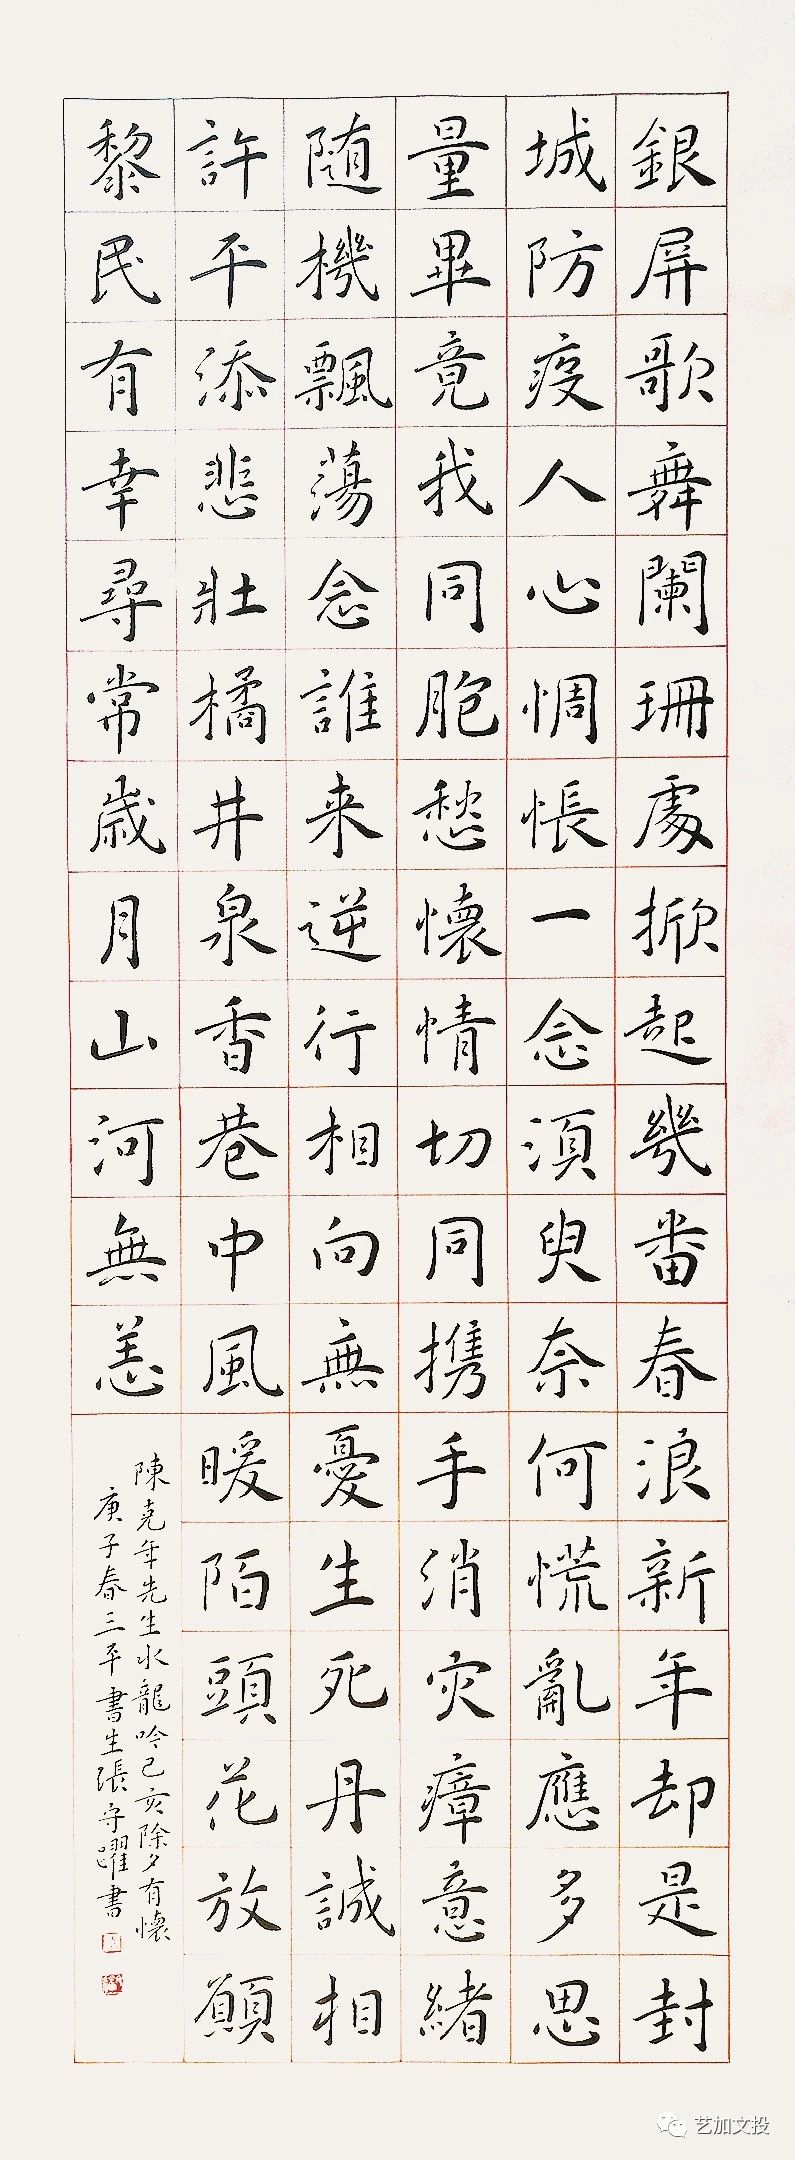 銀屏歌舞闌珊處掀起幾番春浪新年却是封
城防疫人心惆悵一念須臾奈何慌亂應多思
量畢竟我同胞愁懷情切同携手消灾瘴意緒
随機飄蕩念誰来逆行相向無憂生死丹誠相
許平添悲壯橘井泉香巷中風暖陌頭花放願
黎民有幸尋常歲月山河無恙
陳堯年先生水龍吟己亥除夕有懷
庚子春三平書生張守躍書
艺加文投